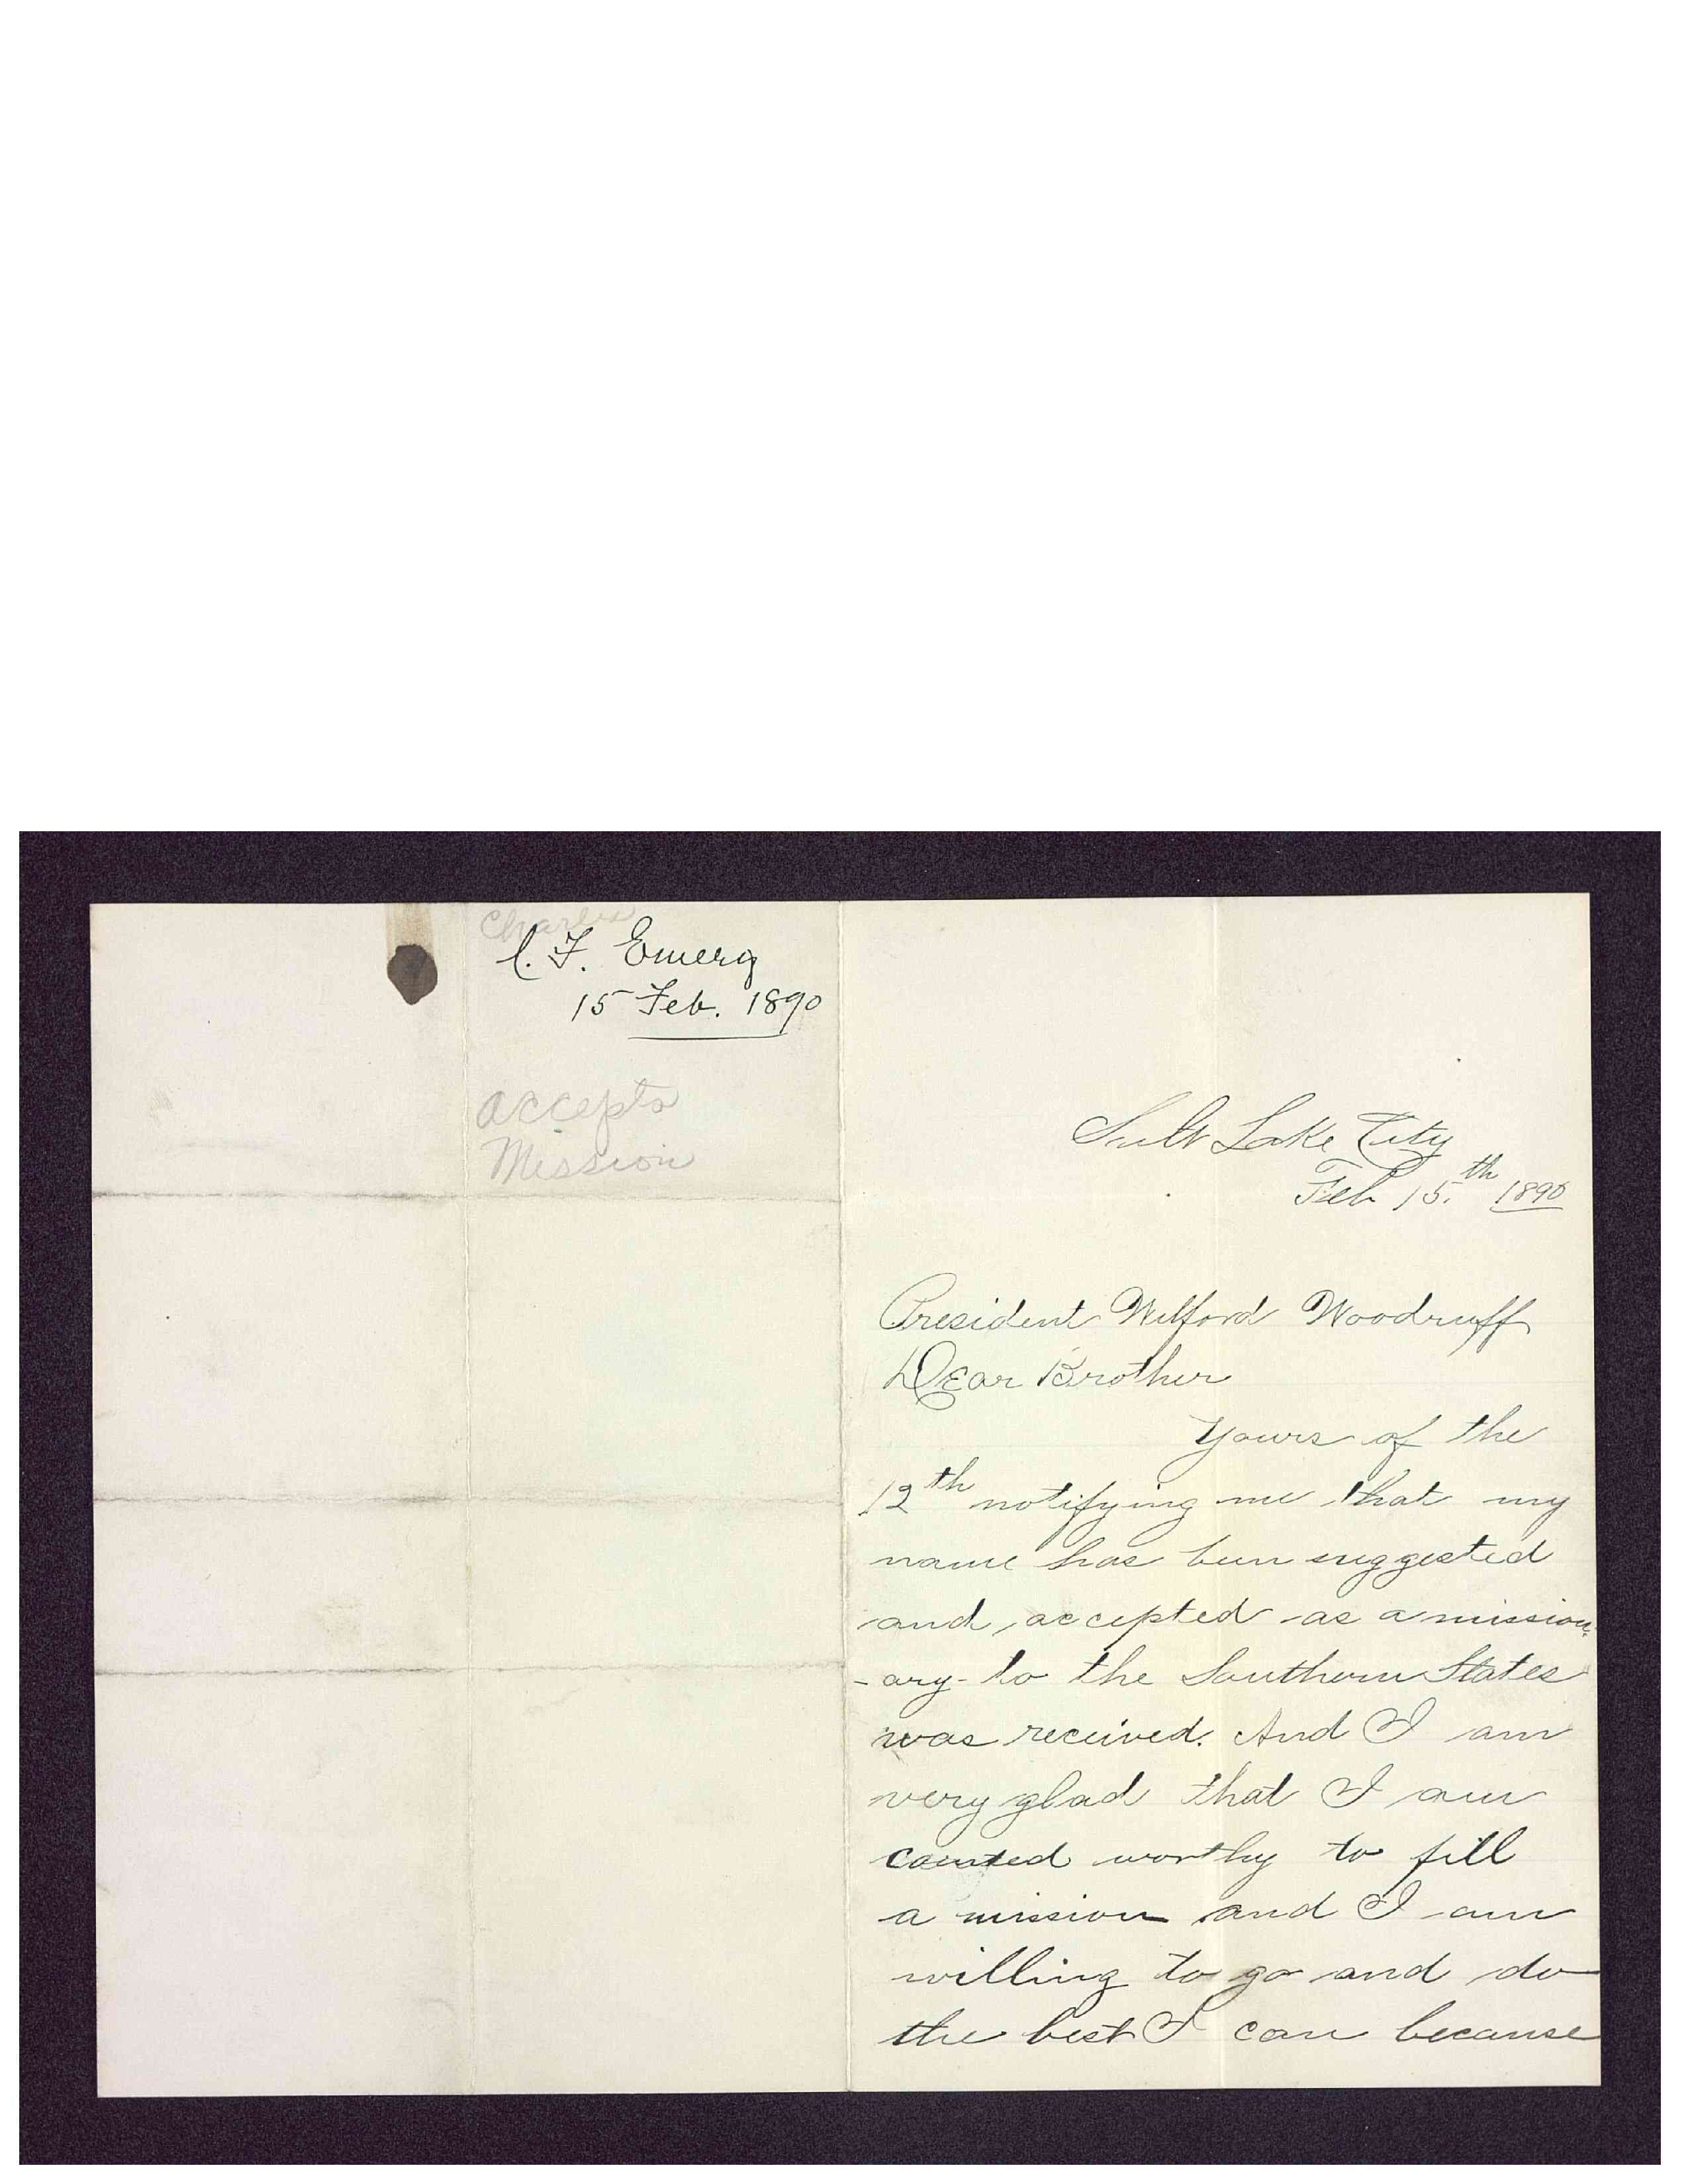 Charles
C. F. Emery
15 Feb. 1890
accepts
Mission
Salt Lake City
Feb 15.th 1890
President Wilford Woodruff
Dear Brother
Yours of the
12th notifying me that my
name has been suggested
and accepted as a mission
-ary to the Southern States
was received. And I am
very glad that I am
counted worthy to fill
a mission and I am
willing to go and do
the best I can because